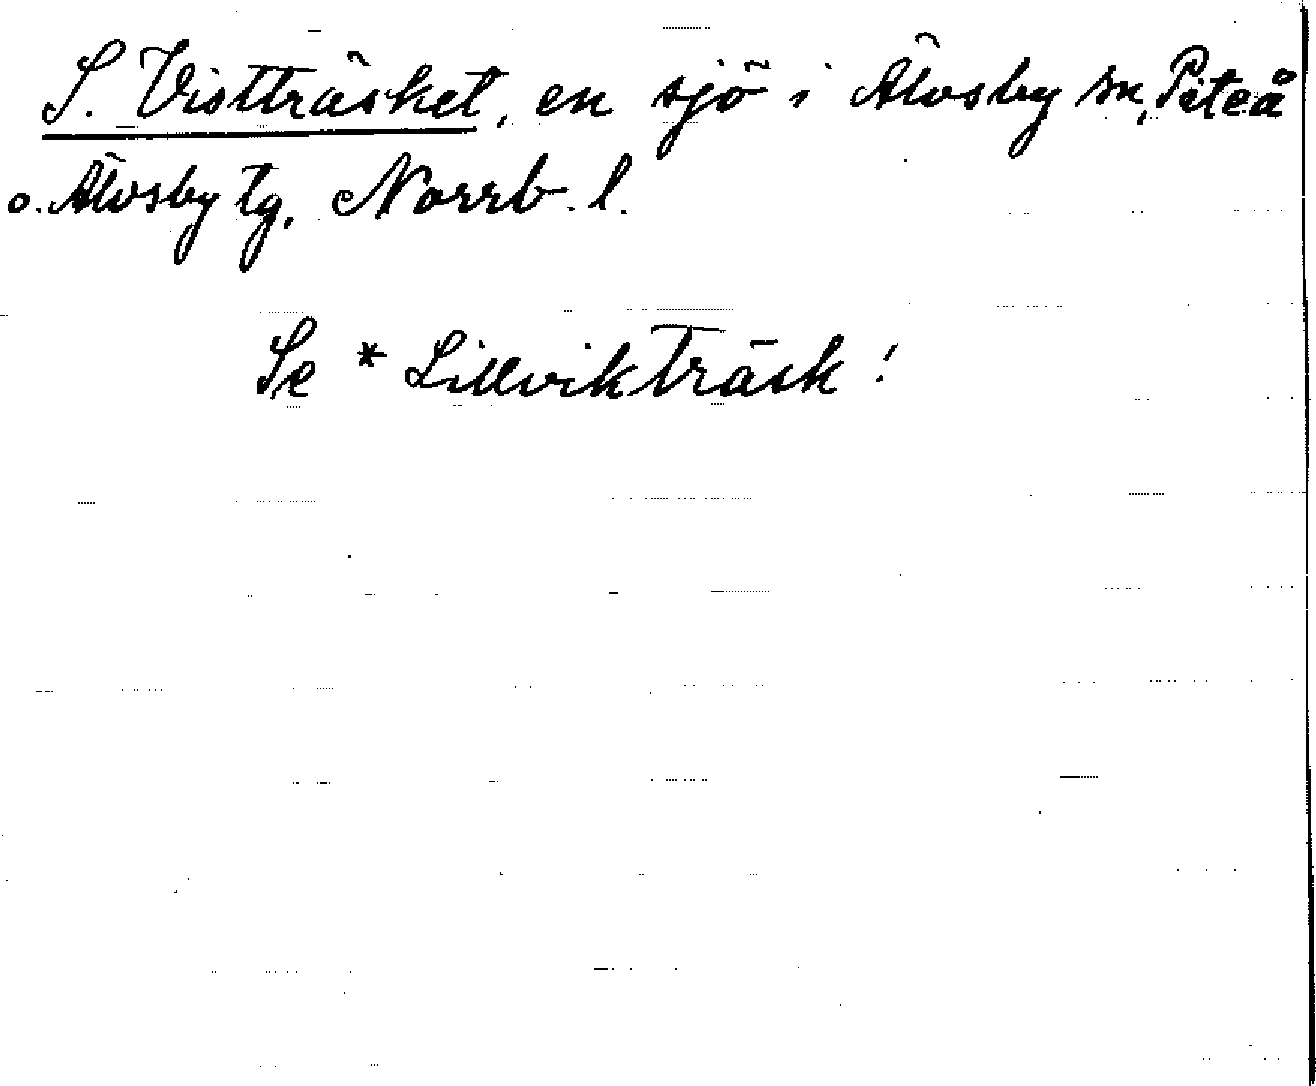 S. Vistträsket, en sjö i Älvsby sn, Piteå
o. Älvsby tg, Norrb. l.
Se * Lillvikträsk!